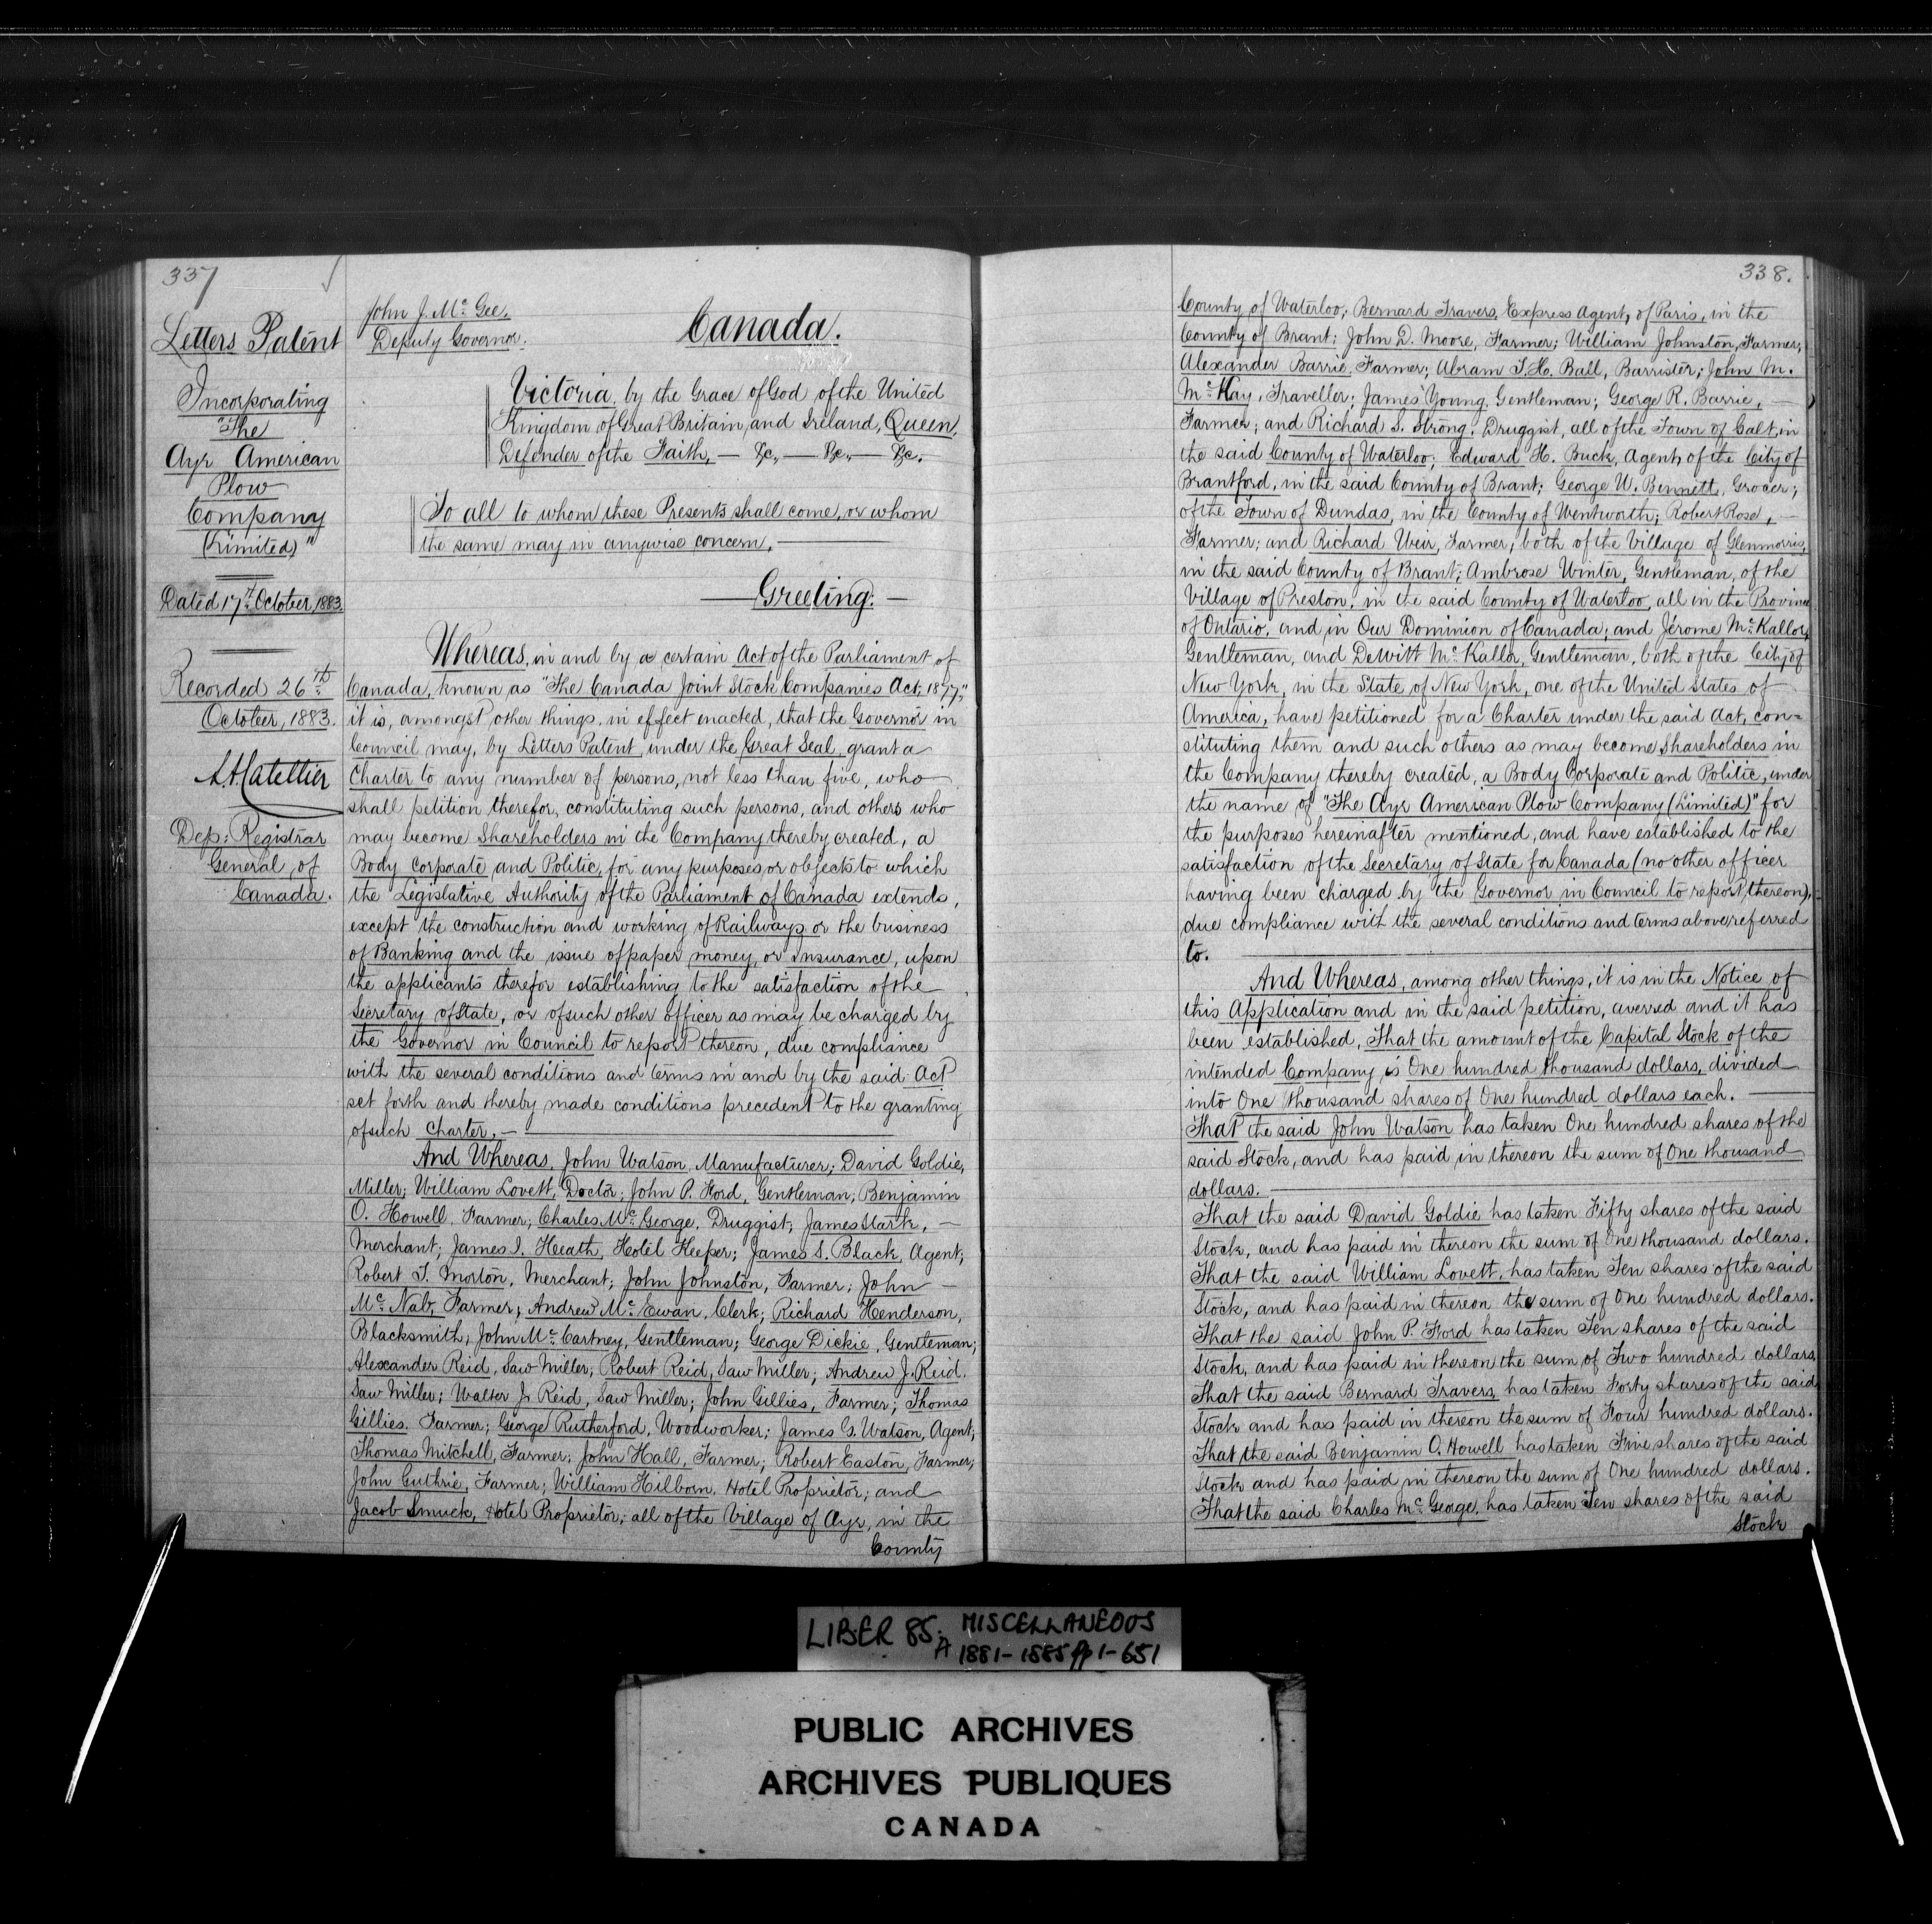 337
Letters Patent
Incorporating
"The
Ayr American
Plow
Company
(Limited)"
Dated 17th October, 1883.
Recorded 26th
October, 1883.
Dep: Registrar
General, of
Canada.
John J. McGee.
Deputy Governor.
Canada.
Victoria, by the Grace of God, of the United
Kingdom, of Great Britain, and Ireland, Queen,
Defender of the Faith, — &c., — &c., — &c.
To all to whom these Presents shall come, or whom
the same may in anywise concern, —
— Greeting: —
Whereas, in and by a certain Act of the Parliament of
Canada, known as "The Canada Joint Stock Companies Act, 1877,"
it is, amongst other things, in effect enacted, that the Governor in
Council may, by Letters Patent, under the Great Seal, grant a
Charter to any number of persons, not less than five, who
shall petition therefor, constituting such persons, and others who
may become Shareholders in the Company thereby created, a
Body Corporate and Politic, for any purposes or objects to which
the Legislative Authority of the Parliament of Canada extends,
except the construction and working of Railways or the business
of Banking and the issue of paper money, or Insurance, upon
the applicants therefor establishing to the satisfaction of the
Secretary of State, or of such other officer as may be charged by
the Governor in Council to report thereon, due compliance
with the several conditions and terms in and by the said Act
set forth and thereby made conditions precedent to the granting
of such Charter. —
And Whereas, John Watson, Manufacturer; David Goldie,
Miller; William Lovett, Doctor; John P. Ford, Gentleman; Benjamin
O. Howell, Farmer; Charles McGeorge, Druggist; James Stark, —
Merchant; James I. Heath, Hotel Keeper; James S. Black, Agent;
Robert T. Morton, Merchant; John Johnston, Farmer; John —
McNab, Farmer; Andrew McEwan, Clerk; Richard Henderson,
Blacksmith; John McCartney, Gentleman; George Dickie, Gentleman;
Alexander Reid, Saw Miller; Robert Reid, Saw Miller; Andrew J. Reid,
Saw Miller; Walter J. Reid, Saw Miller; John Gillies, Farmer; Thomas
Gillies, Farmer; George Rutherford, Woodworker; James G. Watson, Agent;
Thomas Mitchell, Farmer; John Hall, Farmer; Robert Easton, Farmer;
John Guthrie, Farmer; William Hilborn, Hotel Proprietor; and
Jacob Smuck, Hotel Proprietor; all of the Village of Ayr, in the
County
338.
County of Waterloo; Bernard Travers, Express Agent, of Paris, in the
County of Brant; John D. Moore, Farmer; William Johnston, Farmer;
Alexander Barrie, Farmer; Abram T. H. Ball, Barrister; John M.
McKay, Traveller; James Young, Gentleman; George R. Barrie, —
Farmer; and Richard S. Strong, Druggist, all of the Town of Galt, in
the said County of Waterloo; Edward H. Buck, Agent, of the City of
Brantford, in the said County of Brant; George W. Bennett, Grocer;
of the Town of Dundas, in the County of Wentworth; Robert Rose, —
Farmer; and Richard Weir, Farmer; both of the Village of Glenmorris,
in the said County of Brant; Ambrose Winter, Gentleman, of the
Village of Preston, in the said County of Waterloo, all in the Province
of Ontario, and in Our Dominion of Canada; and Jerome McKallor,
Gentleman, and DeWitt McKallor, Gentleman, both of the City of
New York, in the State of New York, one of the United States of
America, have petitioned for a Charter under the said Act, con=
stituting them and such others as may become Shareholders in
the Company thereby created, a Body Corporate and Politic, under
the name of "The Ayr American Plow Company (Limited)" for
the purposes hereinafter mentioned, and have established to the
satisfaction of the Secretary of State for Canada (no other officer
having been charged by the Governor in Council to report thereon),
due compliance with the several conditions and terms above referred
to. —
And Whereas, among other things, it is in the Notice of
this Application and in the said petition, averred and it has
been established, That the amount of the Capital Stock of the
intended Company is One hundred thousand dollars, divided
into One thousand shares of One hundred dollars each. —
That the said John Watson has taken One hundred shares of the
said Stock, and has paid in thereon the sum of One thousand
dollars. —
That the said David Goldie has taken Fifty shares of the said
Stock, and has paid in thereon the sum of One thousand dollars.
That the said William Lovett, has taken Ten shares of the said
Stock, and has paid in thereon the sum of One hundred dollars.
That the said John P. Ford has taken Ten shares of the said
Stock, and has paid in thereon the sum of Two hundred dollars,
That the said Bernard Travers, has taken Forty shares of the said
Stock and has paid in thereon the sum of Four hundred dollars.
That the said Benjamin O. Howell has taken Five shares of the said
Stock and has paid in thereon the sum of One hundred dollars.
That the said Charles McGeorge, has taken Ten shares of the said
Stock
LIBER 85. MISCELLANEOUS
A 1881-1885 pp 1-651
PUBLIC ARCHIVES
ARCHIVES PUBLIQUES
CANADA